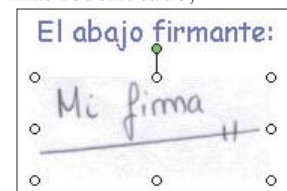 El abajo firmante:
Mi firma